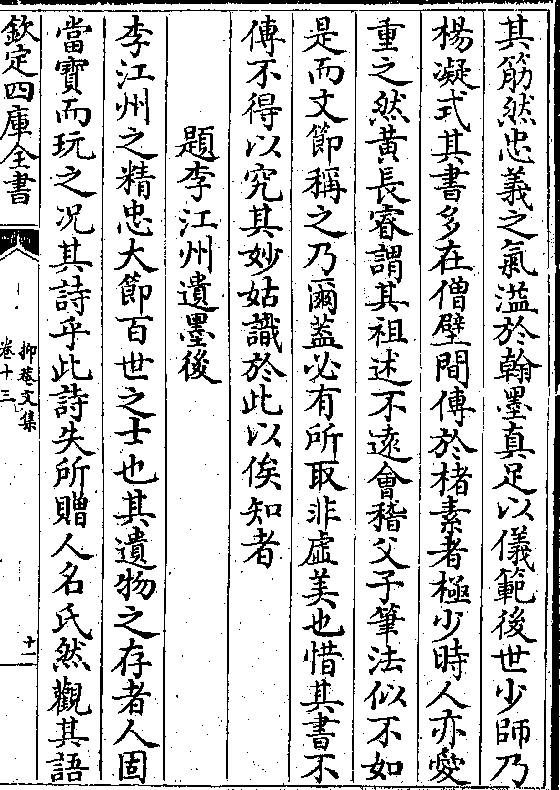 其筋然忠義之氣溢於翰墨真足以儀範後世少師乃
楊凝式其書多在僧壁間傳於楮素者極少時人亦愛
重之然黃長睿謂其祖述不遠會稽父子筆法似不如
是而文節稱之乃爾蓋必有所取非虛美也惜其書不
傳不得以究其妙姑識於此以俟知者
題李江州遺墨後
李江州之精忠大節百世之士也其遺物之存者人固
當寶而玩之况其詩乎此詩失所贈人名氏然觀其語
欽定四庫全書
抑菴文集
卷十三
十一